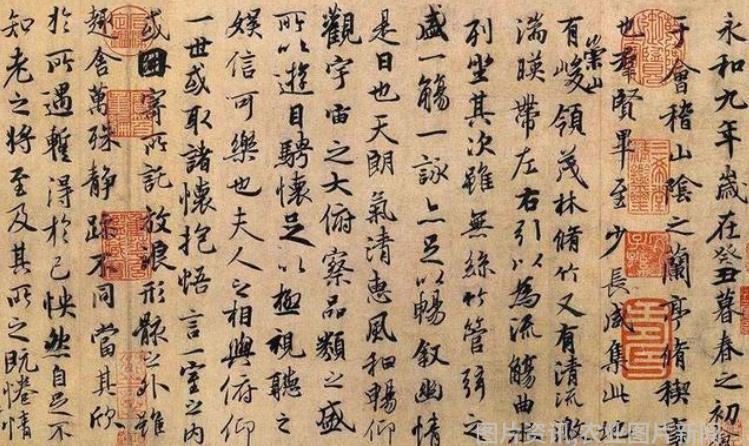 永和九年歲在癸丑暮春之初
于會稽山陰之蘭亭脩稧事
也羣賢畢至少長咸集此
有崇山峻領茂林脩竹又有清流激
湍暎帶左右引以為流觴曲
列坐其次雖無絲竹管弦之
盛一觴一詠亦足以暢敘幽情
是日也天朗氣清惠風和暢仰
觀宇宙之大俯察品類之盛
所以遊目騁懷足以極視聽之
娛信可樂也夫人之相與俯仰
一世或取諸懷抱悟言一室之內
或因寄所託放浪形骸之外雖
趣舍萬殊靜躁不同當其欣
於所遇暫得於己怏然自足不
知老之將至及其所之既惓情
图片资讯 农业图片新闻